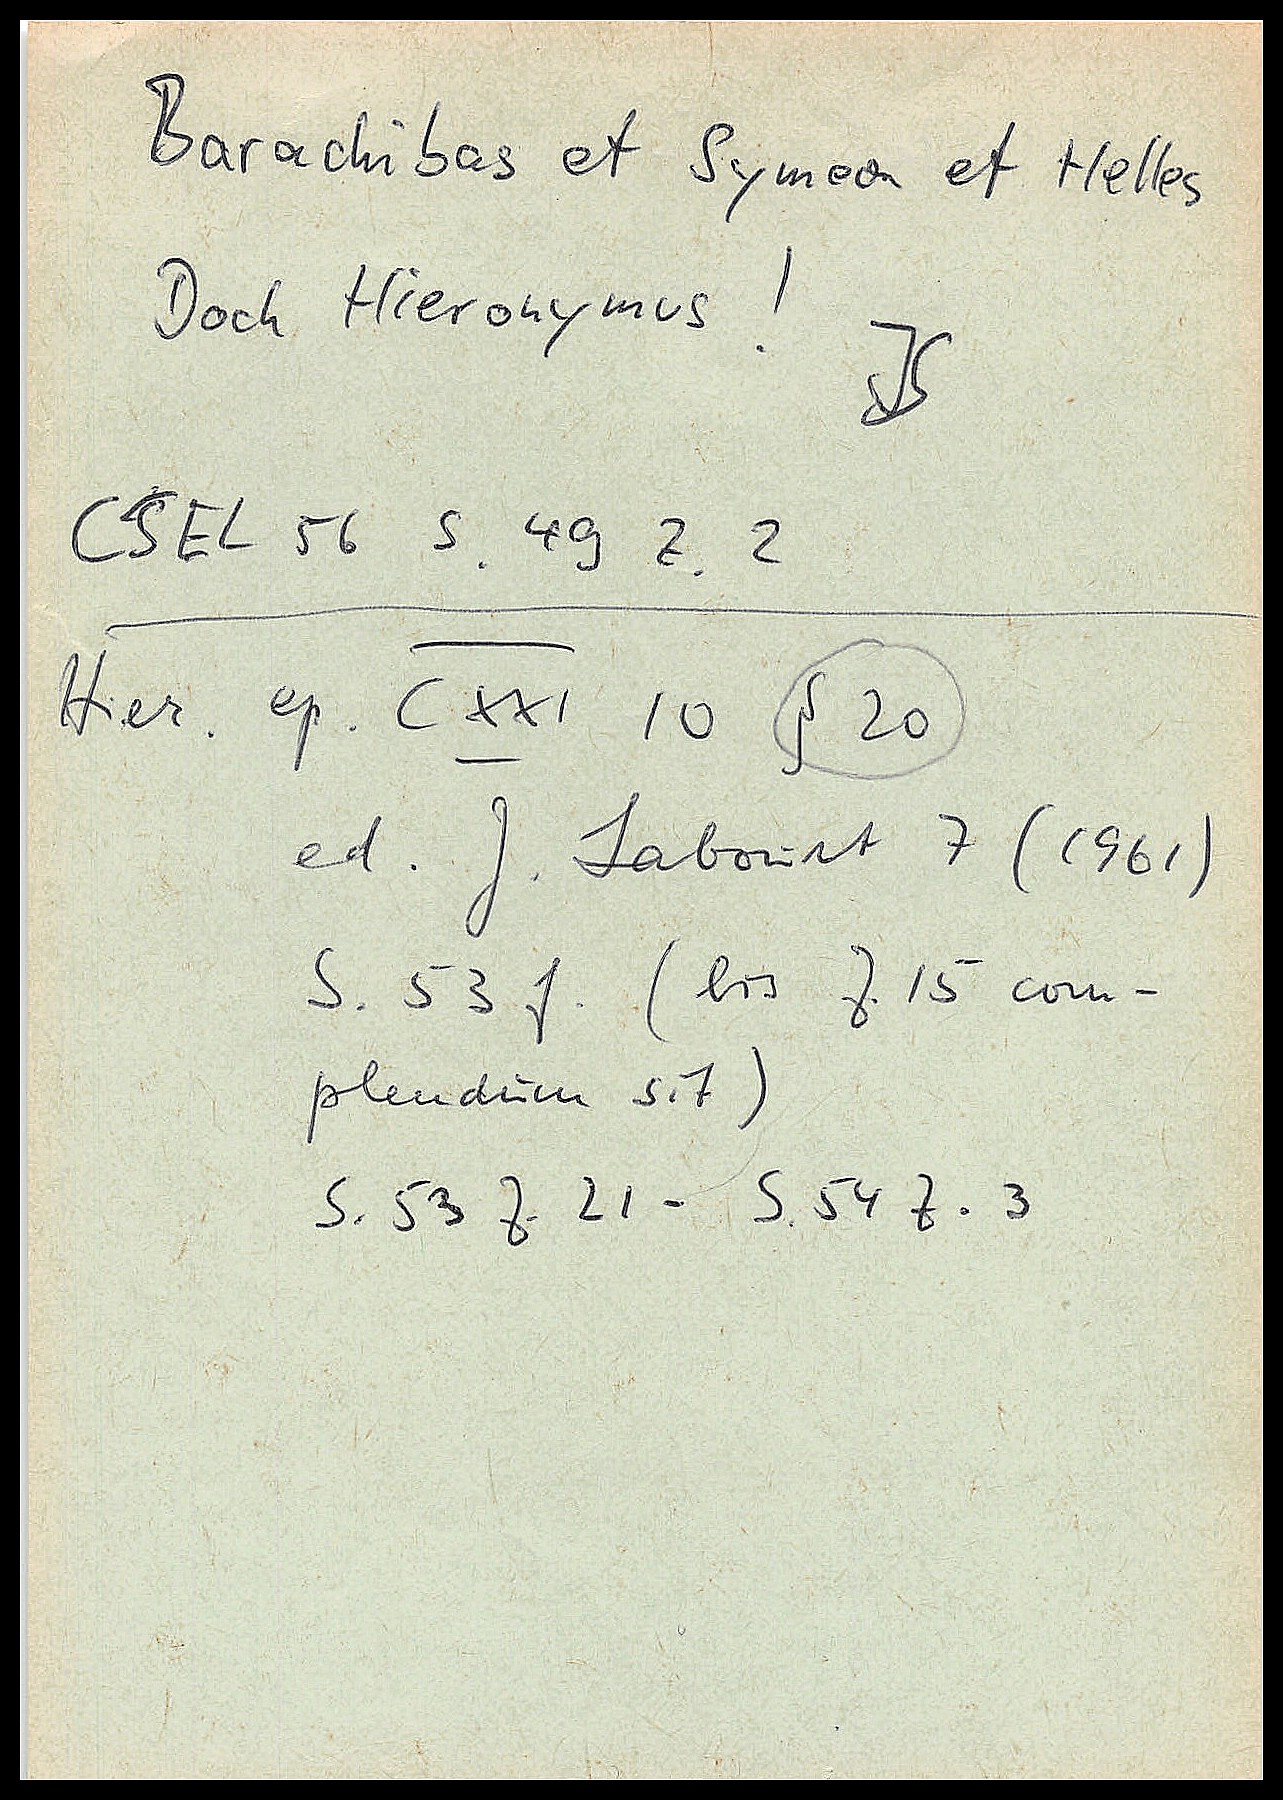 Barachibas et Symeon et Helles
Doch Hieronymus !
JS
CSEL 56 S. 49 Z. 2
Hier. ep. CXXI 10 § 20
ed. J. Labourt 7 (1961)
S. 53 f. (bis Z. 15 com-
plendum sit)
S. 53 Z. 21 - S. 54 Z. 3